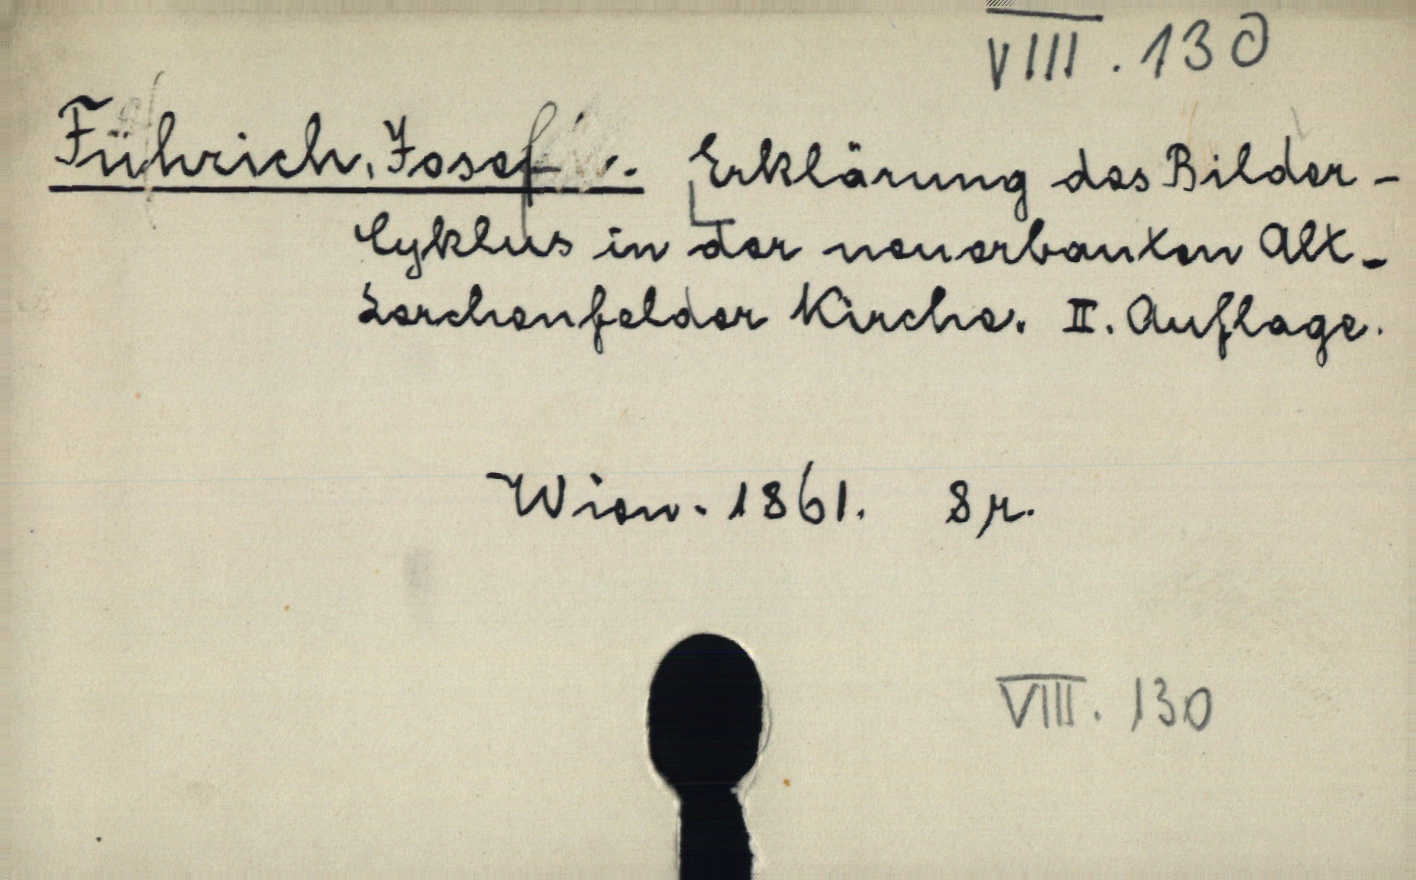 VIII. 130
Führich, Josef. Erklärung des Bilder-
Cyklus in der neuerbauten Alt-
Lerchenfelder Kirche. II. Auflage.
Wien. 1861. 8r.
VIII. 130